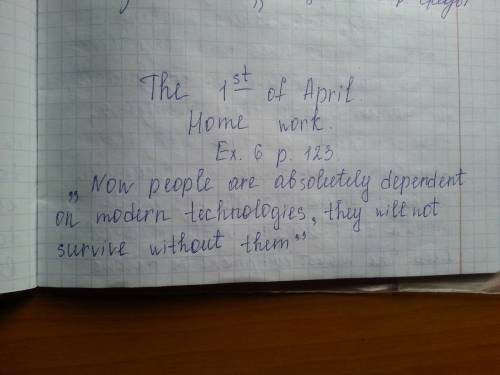 The 1st of April.
Home work.
Ex. 6 p. 123
„Now people are absolutely dependent
on modern technologies, they will not
survive without them”